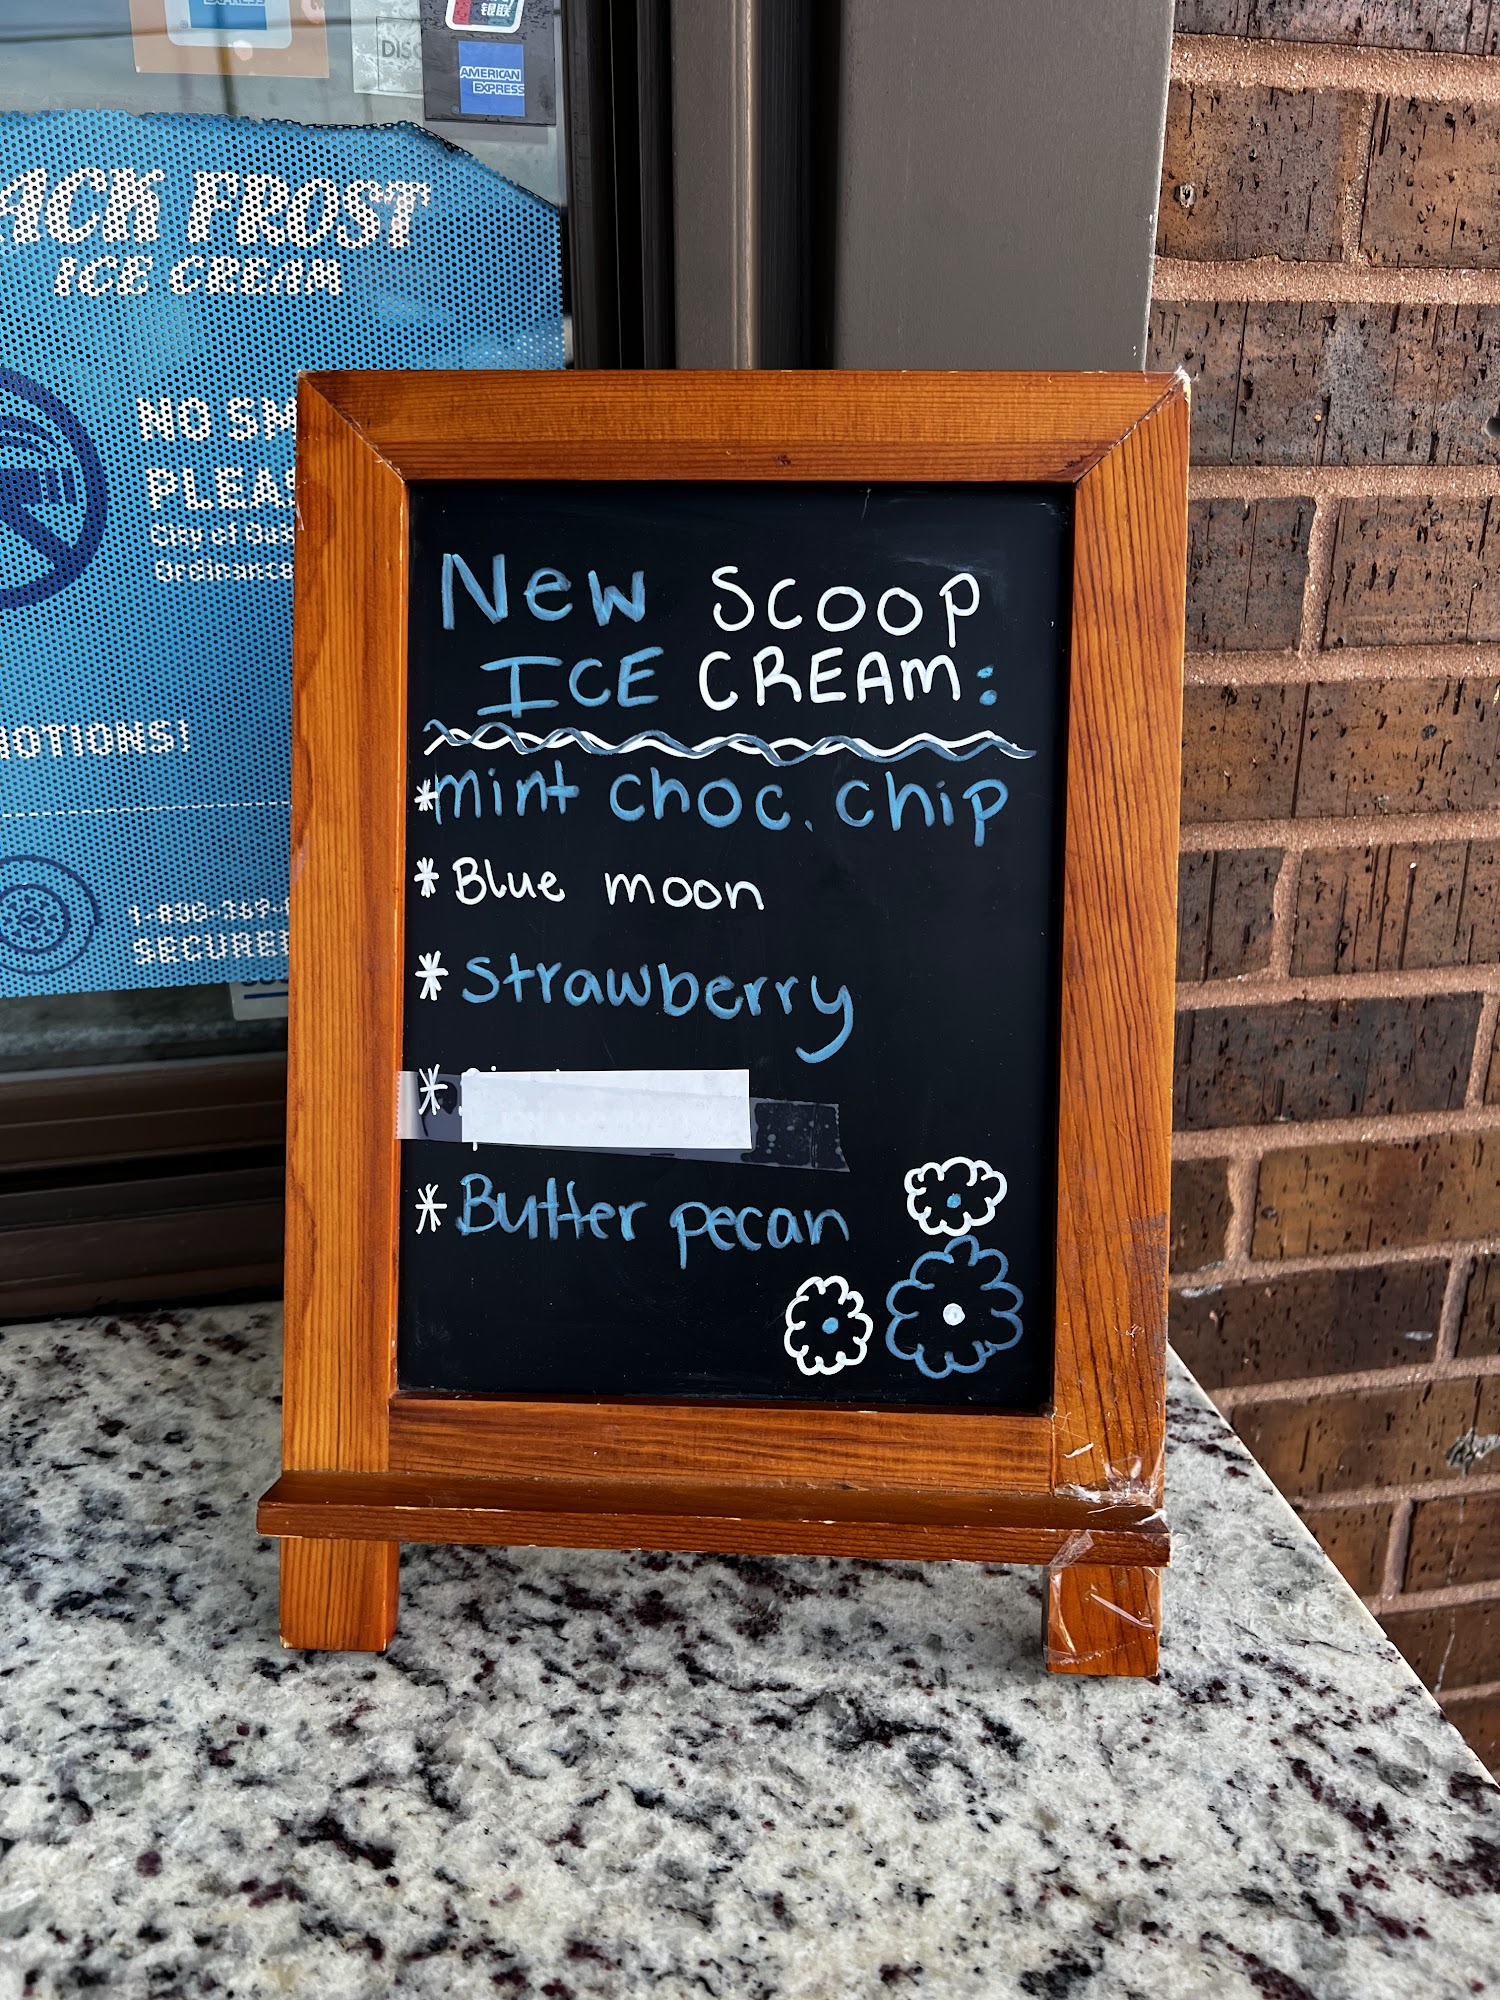 EXPRESS
银联
DISC
AMERICAN
EXPRESS
ACK FROST
ICE CREAM
NO SM
PLEAS
City of Gas
Ordinance
OTIONS!
1-800-369-
SECURE
New SCOOP
ICE CREAM:
*mint choc. chip
* Blue moon
* strawberry
*
* Butter pecan